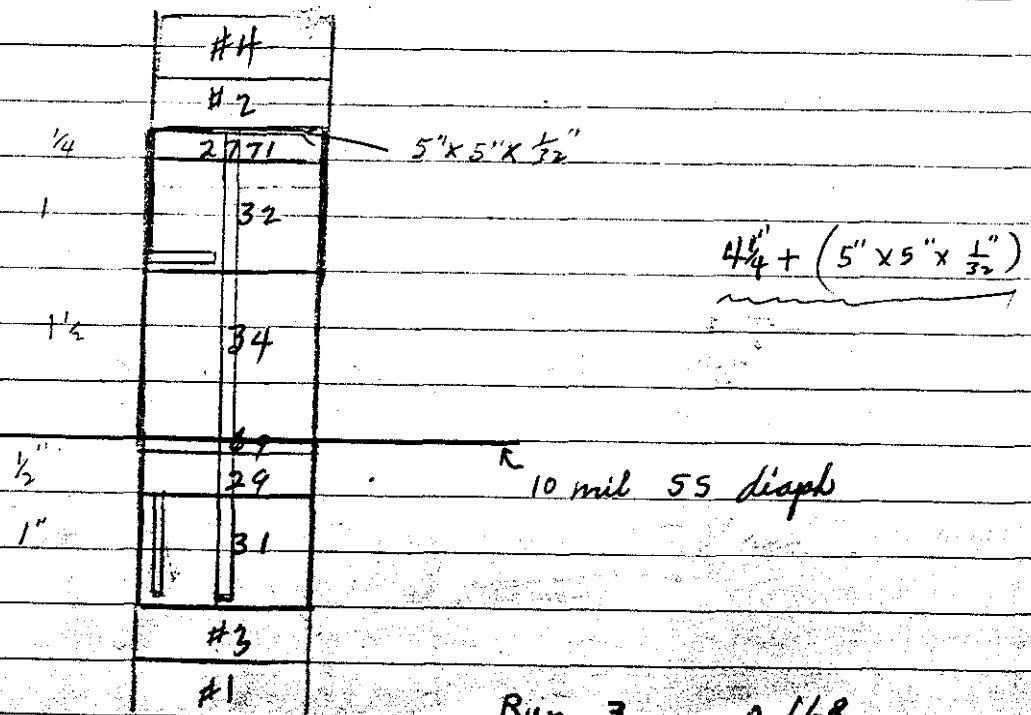 #4
#2
1/4 2771 5" x 5" x 1/32"
1 32
4 1/4" + (5" x 5" x 1/32")
1 1/2 34
69
1/2" 29 10 mil SS diaph
1" 31
#3
#1
Run 3 p 168